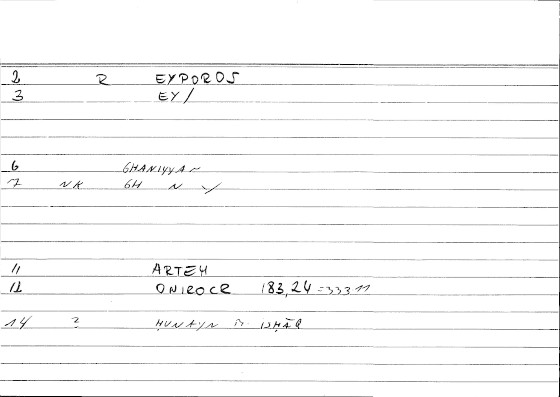 2 R EYPOROS
3 EY/
6 GHANIYYAN
7 NK GH N
11 ARTEM
12 ONIROCR 183,24 =333 11
14 ? ḤUNAYN B. ISḤĀQ